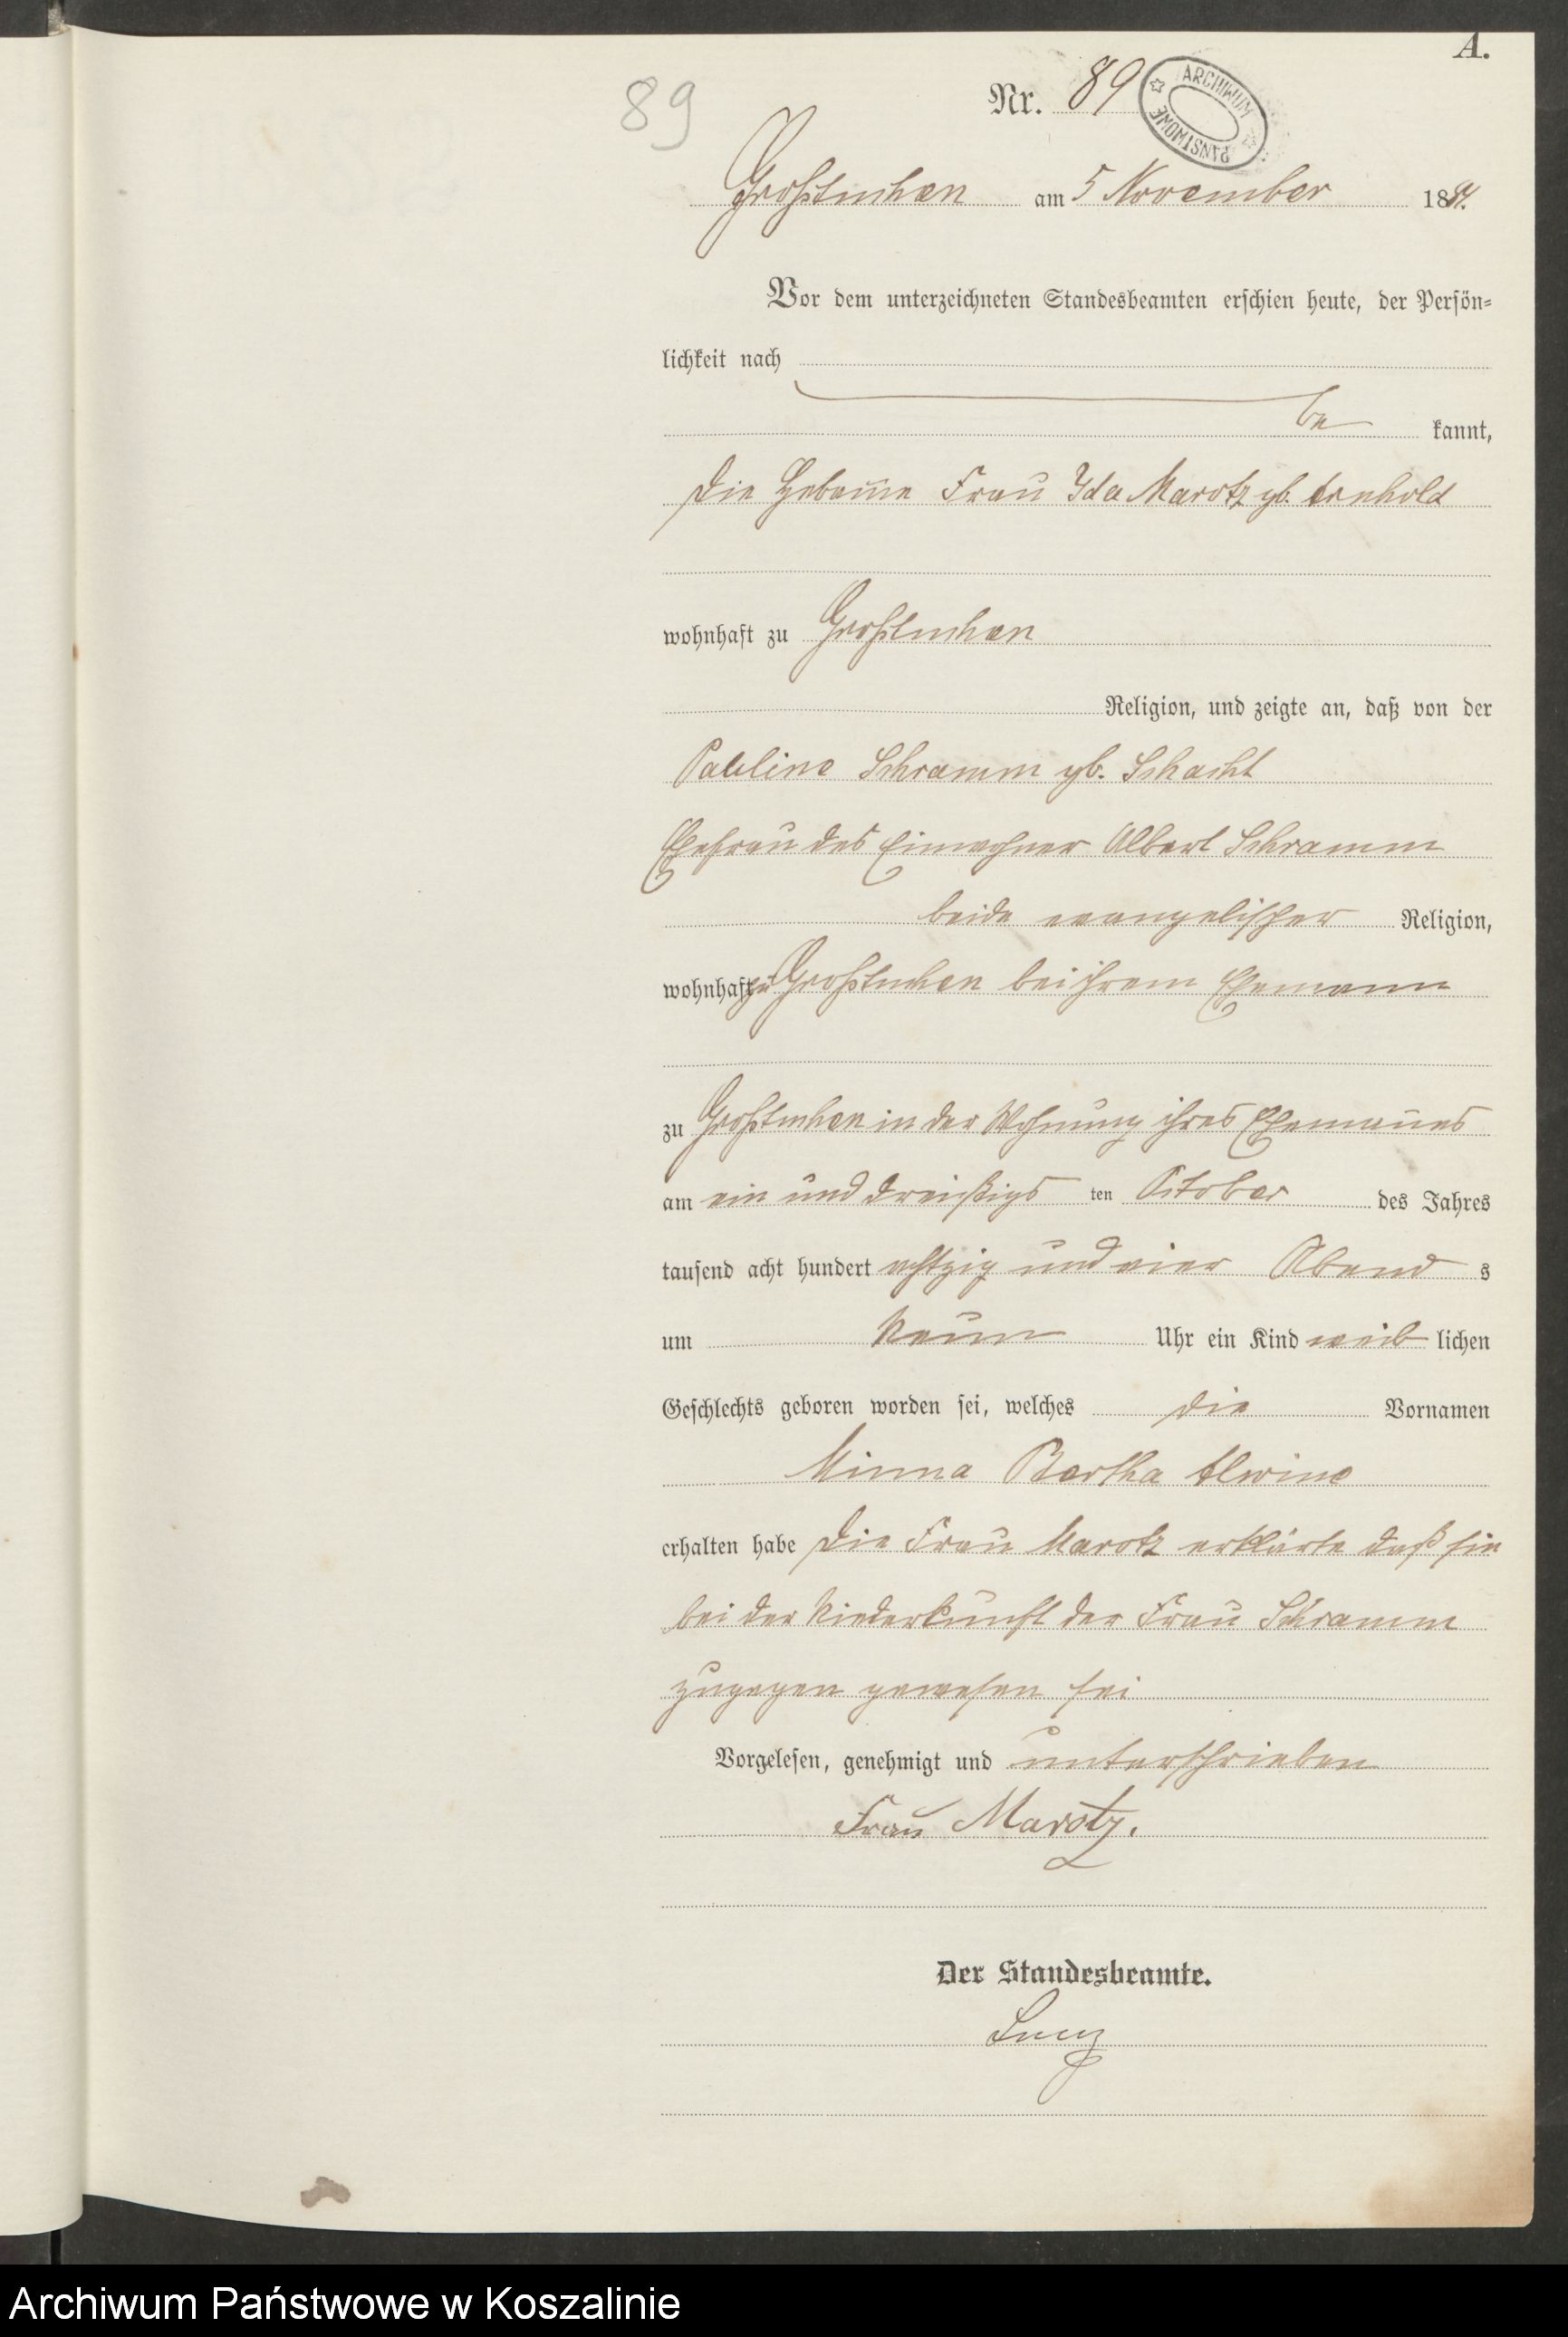 A.
89
Nr. 89
ARCHIWUM PAŃSTWOWE
Großtuchen am 5 November 1884.
Vor dem unterzeichneten Standesbeamten erschien heute, der Persön-
lichkeit nach
be kannt,
die Hebam̅e Frau Ida Marotz gb.
wohnhaft zu Großtuchen
Religion, und zeigte an, daß von der
Pauline Schramm gb. Schacht
Ehefrau des Einwohner Albert Schramm
beide evangelischer Religion,
wohnhaft zu Großtuchen bei ihrem Ehemann
zu Großtuchen in der Wohnung ihres Eheman̅es
am ein und dreißigs ten October des Jahres
tausend acht hundert achtzig und vier Abend s
um Neun Uhr ein Kind weib lichen
Geschlechts geboren worden sei, welches die Vornamen
Minna Bertha Alwine
erhalten habe Die Frau Marotz erklärte daß sie
bei der Niederkunft der Frau Schramm
zugegen gewesen sei
Vorgelesen, genehmigt und unterschrieben
Frau Marotz.
Der Standesbeamte.
Archiwum Państwowe w Koszalinie